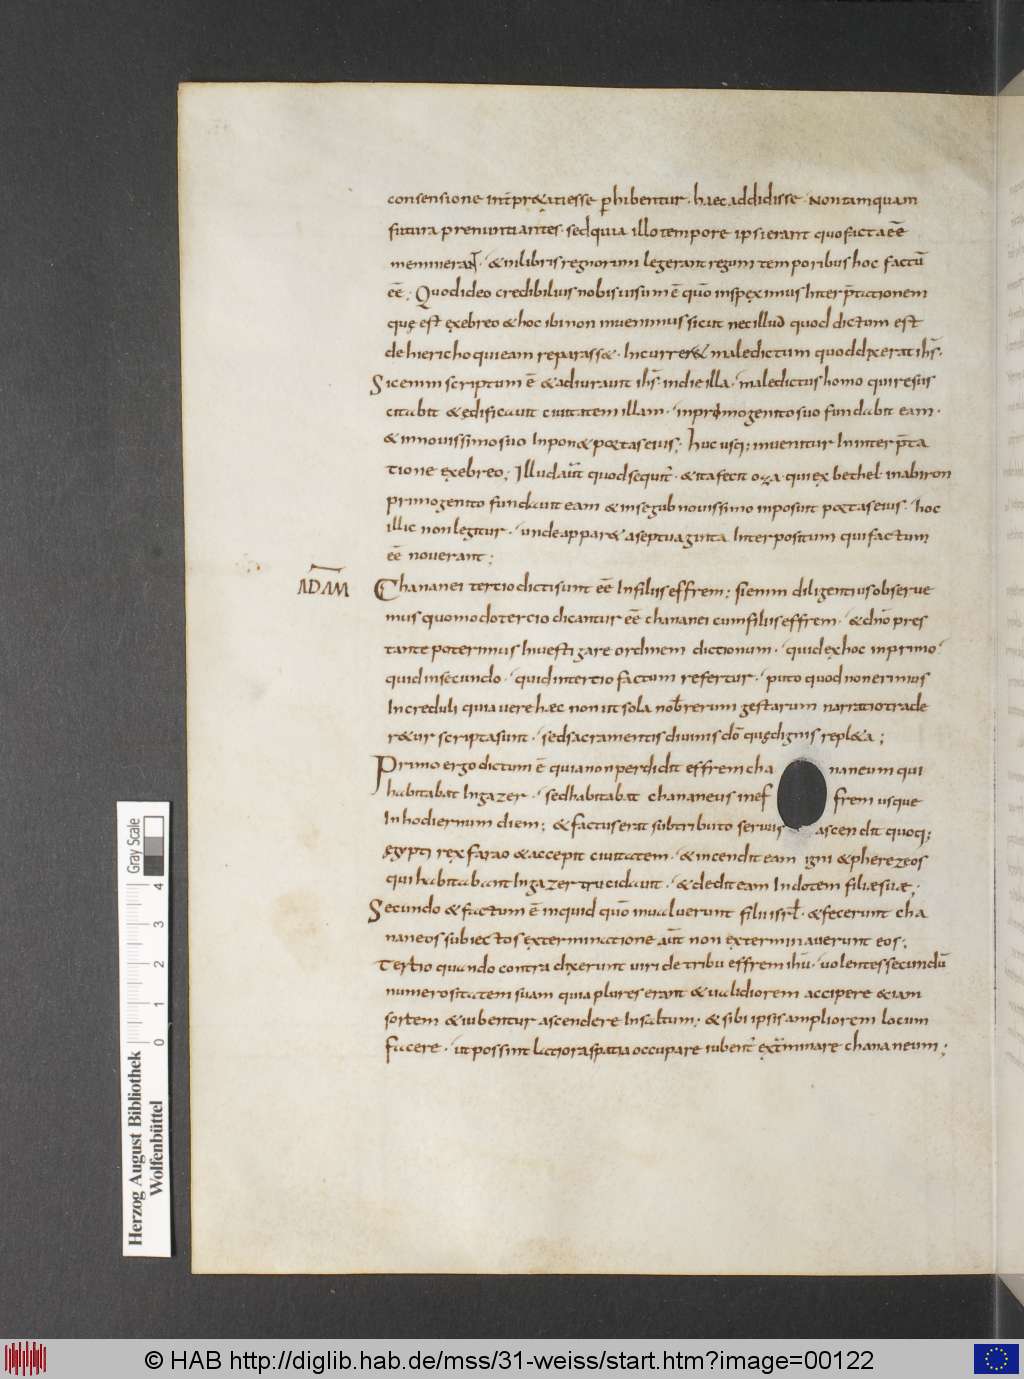 consensione int̄pr&atiesse p̱hibentur. haec addidisse. Non tamquam
futura prenuntiantes. sed quia illo tempore ipsi erant quo ficta eē
meminerant. & in libris regnorum legerant regum temporibus hoc factū
eē; Quod ideo credibilius nobis uisum ē quō inspeximus Interp̄tationem
quę est ex ebreo & hoc ibi non inuenimus sicut nec illud quod dictum est
de hiericho qui eam reparass&. Incurrer& maledictum quod dixerat ihs̄.
Sic enim scriptum ē & adiurauit ihs̄ in die illa. maledictus homo qui resus
citabit & edificauit ciuitatem illam. in primogenito suo fundabit eam.
& in nouissimo suo Inpon& portas eius; huc usq; inuenitur In interp̄ta
tione ex ebreo; Illud aūt quod sequit̄. & ita fecit oza. qui ex bethel in abiron
primogenito fundauit eam & in segub nouissimo inposuit portas eius. hoc
illic non legitur. unde appar& a septuaginta Interpositum qui factum
eē nouerant;
ADAM
Chananei tertio dicti sunt eē In filiis effrem; si enim diligentius obserue
mus quomodo tercio dicantur eē chananei cum filiis effrem. & dn̄o pres
tante poterimus Inuestigare ordinem dictionum. quid ex hoc in primo.
quid in secundo. quid in tertio factum refertur. puto quod non erimus
Increduli quia uere hæc non ut sola nob̄ rerum gestarum narratio trade
r&ur scripta sunt. sed sacramentis diuinis dō quę dignis repl&a;
Primo ergo dictum ē quia non perdidit effrem cha naneum qui
habitabat In gazer. sed habitabat chananeus in ef frem usque
In hodiernum diem; & factus erat sub tributo seruus ascendit quoq;
ęgypti rex farao & accepit ciuitatem. & incendit eam igni & pherezeos
qui habitabant In gazer trucidauit. & dedit eam In dotem filiæ suæ;
Secundo & factum ē inquid quō inualuerunt filii isrl̄. & fecerunt cha
naneos subiectos exterminatione aūt non exterminauerunt eos;
Tertio quando contradixerunt uiri de tribu effrem ihū. uolentes secundū
numerositatem suam quia plures erant & ualidiorem accipere & iam
sortem & iubentur ascendere In saltum; & sibi ipsis ampliorem locum
facere. ut possint latiora spatia occupare iubent̄ ext̄minare chananeum;
Herzog August Bibliothek
Wolfenbüttel
0 1 2 3 4
Gray Scale
© HAB http://diglib.hab.de/mss/31-weiss/start.htm?image=00122